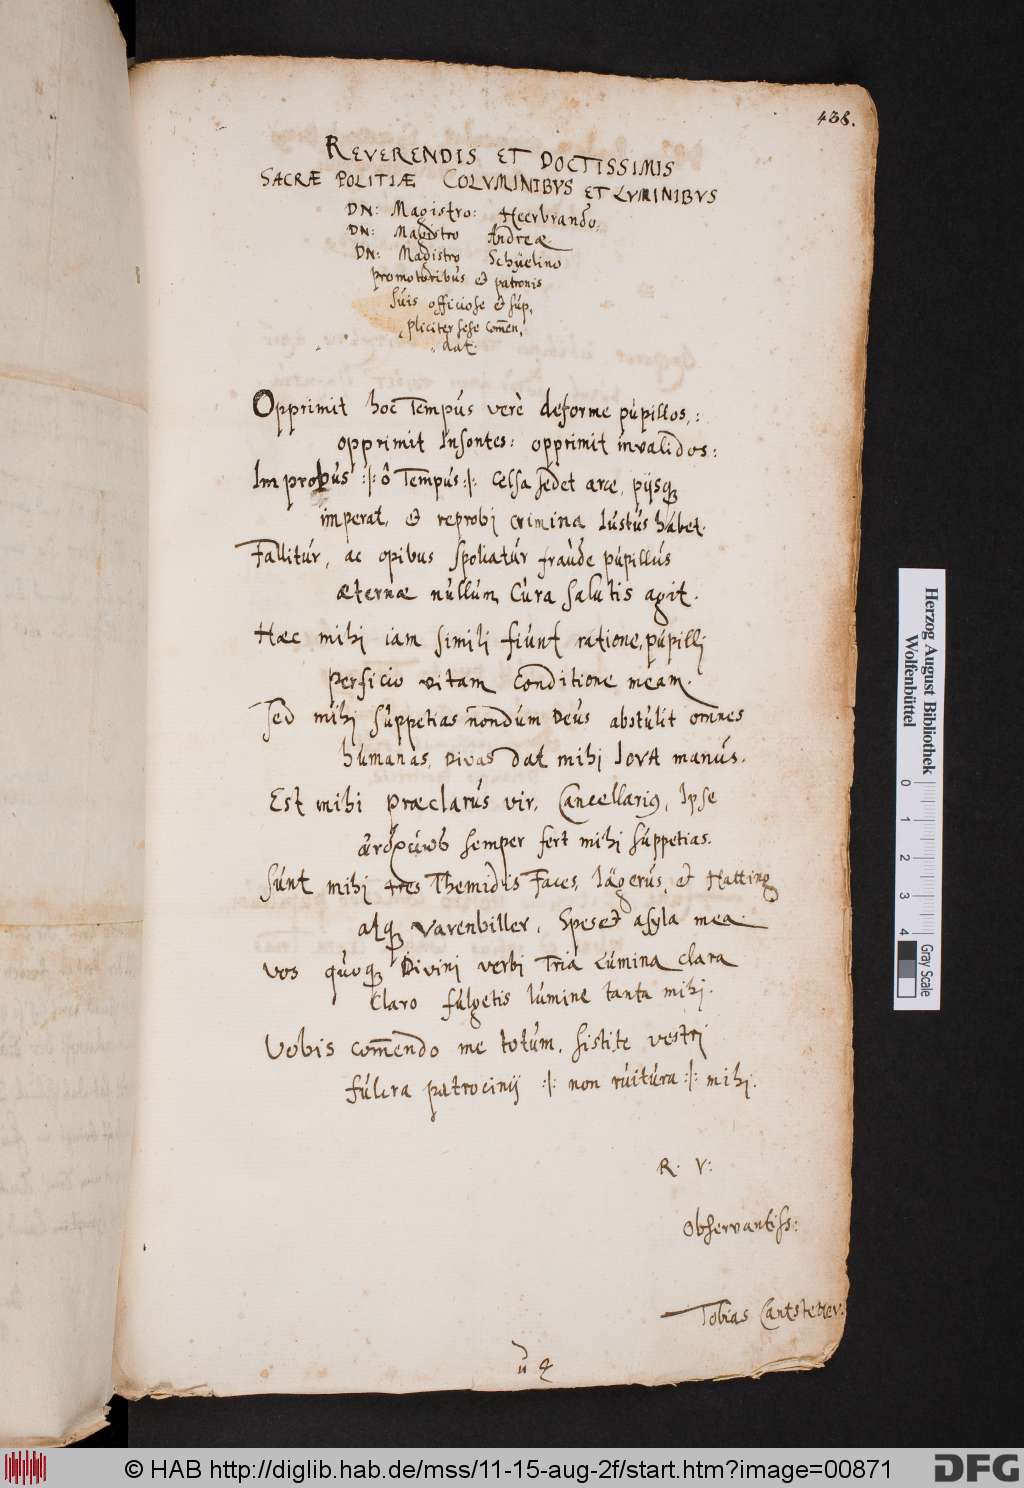 438.
REVERENDIS ET DOCTISSIMIS
SACRÆ POLITIÆ COLVMINIBVS ET LVMINIBVS
DN: Magistro: Heerbrando,
DN: Magistro Andreæ
DN: Magistro Schüelino
promotoribus et patronis
suis officiose et sup,
pliciter sese comen̄,
dat.
Opprimit hoc Tempus verè deforme pupillos,:
opprimit Insontes: opprimit invalidos:
Improbus :|: ô Tempus :|: celsa sedet arce, pijsq;
imperat, et reprobj crimina Iustus habet.
Fallitur, ac opibus spoliatur fraude pupillus
æternæ nullum, Cura salutis agit.
Hæc mihj iam similj fiunt ratione, pupillj
perficio vitam Conditione meam.
Sed mihj suppetias nondum Deus abstulit omnes
humanas, Divas dat mihj IovA manus.
Est mihi præclarus vir, Cancellarius, Ipse
semper fert mihj suppetias.
Sunt mihj tres Themidis Faces, Iägerus, et Hatting
atq; Varenbiller, Spes et asyla mea.
Vos quoq; Divinj verbi Tria Lumina clara
Claro fulgetis lumine tanta mihj.
Vobis com̄endo me totum, sistite vestrj
fulcra patrocinij :|: non ruitura :|: mihj.
R. V:
Observantiss:
Tobias
Herzog August Bibliothek
Wolfenbüttel
0 1 2 3 4
Gray Scale
© HAB http://diglib.hab.de/mss/11-15-aug-2f/start.htm?image=00871
DFG